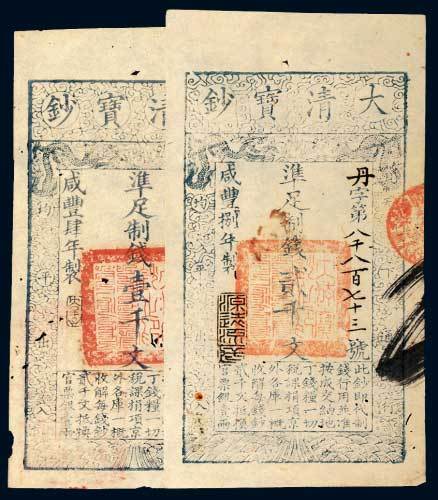 大清寶鈔
丹字第八千八百七十三號
準足制錢貳千文
咸豐捌年製
均平入
此鈔即代制
錢行用並准
按成交納地
丁錢糧一切
稅課捐項京
外各庫一概
收解每錢鈔
貳千文抵換
官票銀
清寶鈔
準足制錢壹千文
咸豐肆年製
均平出入
丁錢糧一切
稅課捐項京
外各庫一概
收解每錢鈔
貳千文抵換
官票銀壹兩